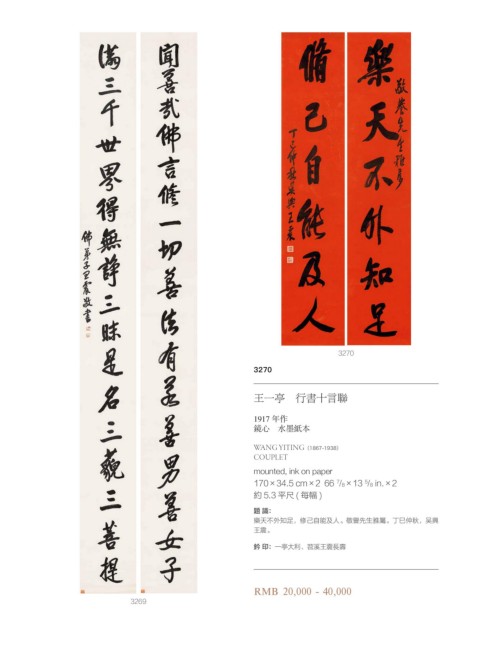 聞善哉佛言修一切善法有若善男善女子
滿三千世界得無諍三昧是名三藐三菩提
佛弟子王震敬書
3269
樂天不外知足
敬先生雅屬
脩己自能及人
丁巳仲秋吳興王震
3270
3270
王一亭 行書十言聯
1917 年作
鏡心 水墨紙本
WANG YITING (1867-1938)
COUPLET
mounted, ink on paper
170 × 34.5 cm × 2 66 7/8 × 13 5/8 in. × 2
約 5.3 平尺（每幅）
題識：
樂天不外知足，修己自能及人。敬先生雅屬。丁巳仲秋，吳興
王震。
鈐印：一亭大利、苕溪王震長壽
RMB 20,000 - 40,000